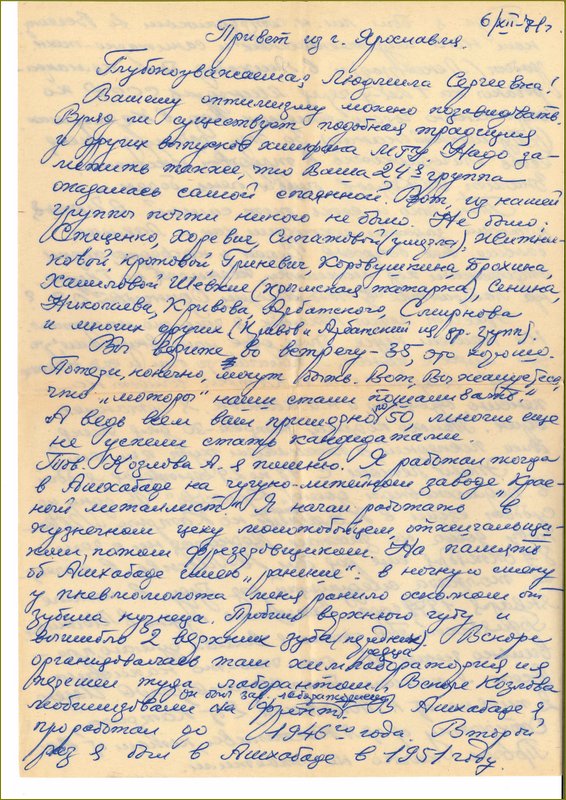 6/XII-78г.
Привет из г. Ярославля.
Глубокоуважаемая Людмила Сергеевна!
Вашему оптимизму можно позавидовать.
Вряд ли существует подобная традиция
у других выпусков химфака МГУ. Надо за-
метить также, что Ваша 24я группа
оказалась самой спаянной. Вот, из нашей
группы почти никого не было. Не было:
Стеценко, Хоревич, Сипатовой
ковой, Кротовой, Гриневич, Коровушкина, Ерохина,
Шевкие (крымская татарка), Сенина,
Николаева, Кривова, Арбатского, Смирнова
и многих других (Кривов и Арбатский из др. групп).
Вы верите во встречу - 35, это хорошо.
Потери, конечно, могут быть. Вот, Вы жалуетесь,
что „моторы" наши стали пошаливать".
А ведь всем нам примерно по 50, многие еще
не успели стать кандидатами.
Тов. Козлова А. я помню. Я работал тогда
в Ашхабаде на чугуно-литейном заводе „Крас-
ный металлист". Я начал работать в
кузнечном цеху молотобойцем,
потом фрезеровщиком. На память
об Ашхабаде имею „ранение": в ночную смену
у пневмомолота меня ранило осколком от
зубила кузнеца. Пробило верхнюю губу и
вышибло 2 верхних зуба (передних). Вскоре
организовалась там химлаборатория и я
перешел туда лаборантом. Вскоре Козлова
(он был зав. лабораторией)
мобилизовали на фронт. В Ашхабаде я
проработал до 1946го года. Второй
раз я был в Ашхабаде в 1951 году.